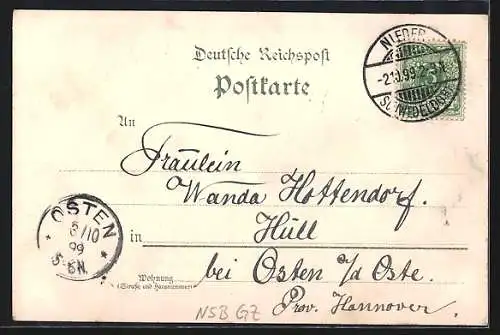 Deutsche Reichspost
Postkarte
NIEDER
-2.10.99.2-3N.
SCHWEDELDORF
5
An
Fräulein
Wanda Hottendorf.
in Hüll
bei Osten a/d Oste.
Prov. Hannover.
Wohnung
(Straße und Hausnummer)
OSTEN
/10
99
NSB GZ